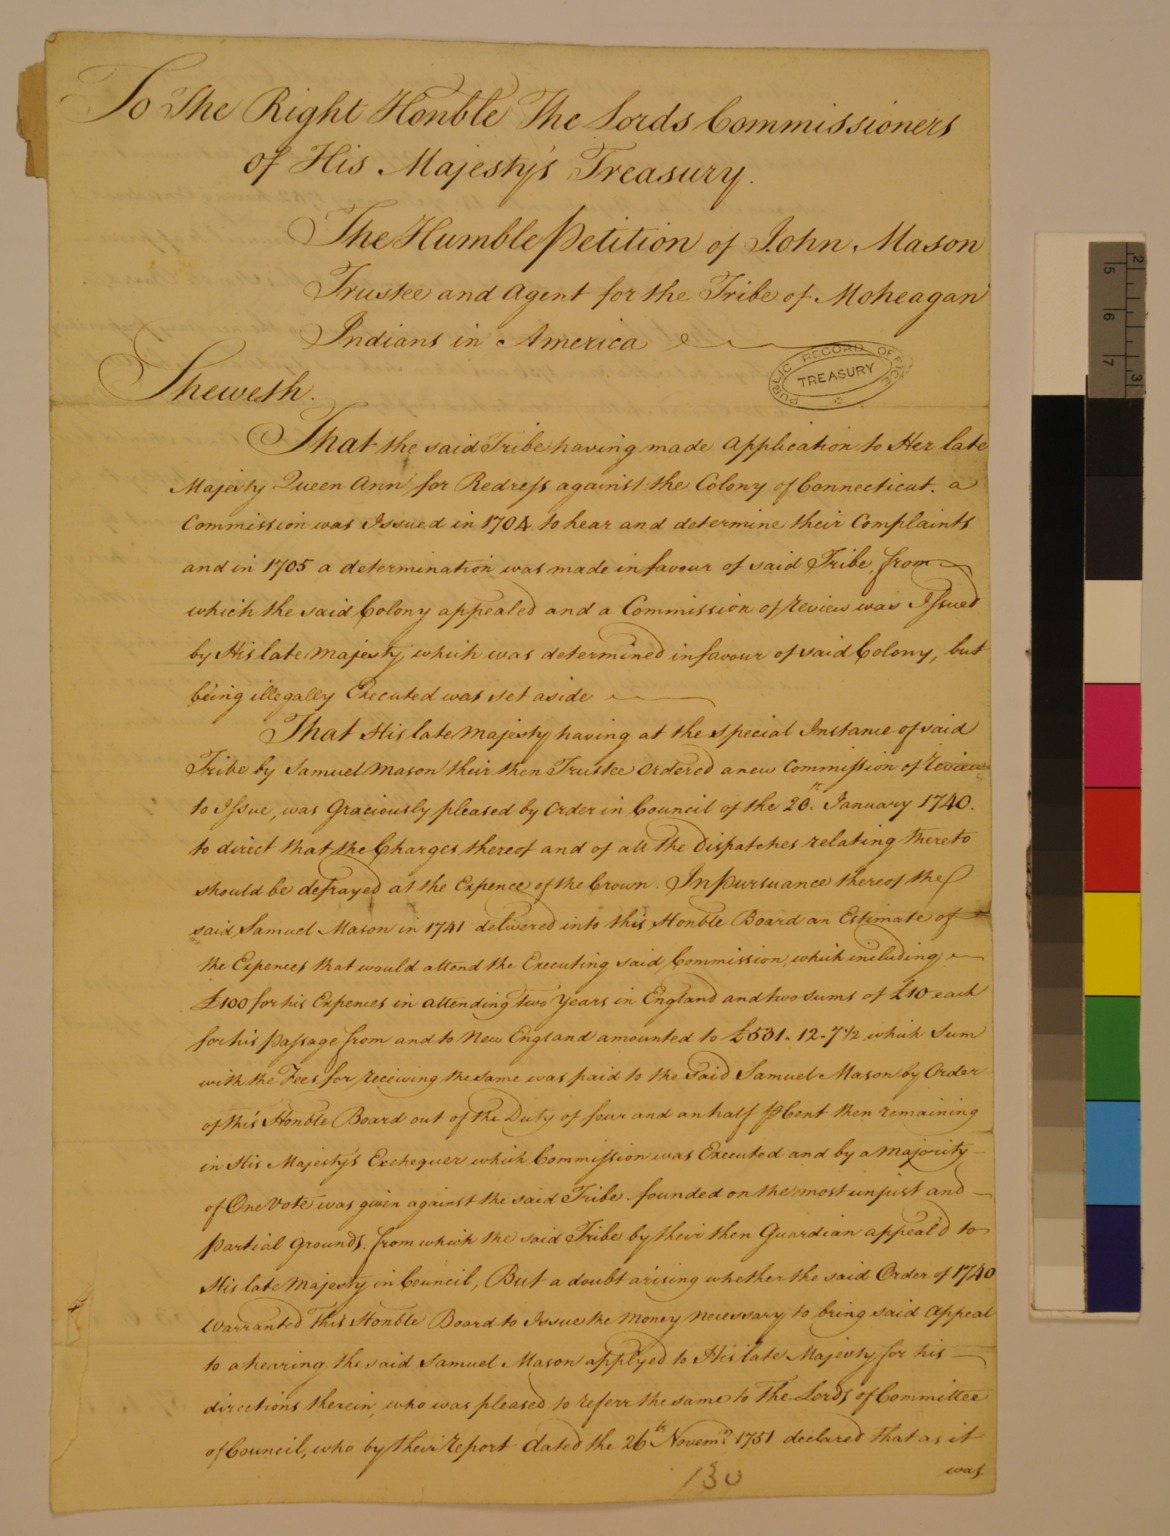 To The Right Honble The Lords Commissioners
of His Majesty's Treasury.
The Humble Petition of John Mason
Trustee and Agent for the Tribe of Moheagan
Indians in America
PUBLIC RECORD OFFICE
TREASURY
Sheweth.
That the said Tribe having made Application to Her late
Majesty Queen Ann for Redress against the Colony of Connecticut. a
Commission was Issued in 1704 to hear and determine their Complaints
and in 1705 a determination was made in favour of said Tribe, from
which the said Colony appealed and a Commission of Review was Issued
by His late Majesty, which was determined in favour of said Colony, but
being illegally Executed was set aside
That His late Majesty having at the special Instance of said
Tribe by Samuel Mason their then Trustee Ordered a new Commission of Review
to Issue, was Graciously pleased by Order in Council of the January 1740.
to direct that the Charges thereof and of all the Dispatches relating thereto
should be defrayed at the Expence of the Crown. In pursuance thereof the
said Samuel Mason in 1741 delivered into this Honble Board an Estimate of
the Expences that would attend the Executing said Commission, which including
£100 for his Expences in attending two Years in England and two sums of £10 each
for his passage from and to New England amounted to £531-12-7½ which Sum
with the Fees for receiving the same was paid to the said Samuel Mason by Order
of this Honble Board out of the Duty of four and an half p Cent then remaining
in His Majesty's Exchequer which Commission was Executed and by a Majority
of One Vote was given against the said Tribe founded on the most unjust and
partial Grounds, from which the said Tribe by their then Guardian appeal'd to
His late Majesty in Council, But a doubt arising whether the said Order of 1740
Warranted This Honble Board to Issue the Money necessary to bring said Appeal
to a hearing, the said Samuel Mason applyed to His late Majesty for his
directions therein, who was pleased to referr the same to The Lords of Committee
of Council, who by their report dated the 26th Novemr. 1751 declared that as it
was
130
5
6
7
2
3